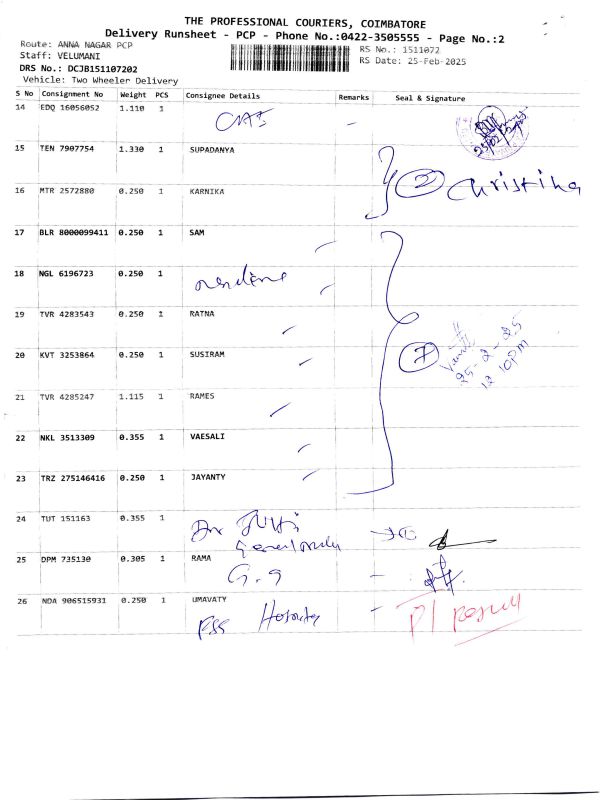 THE PROFESSIONAL COURIERS, COIMBATORE
Delivery Runsheet - PCP - Phone No.:0422-3505555 - Page No.:2
Route: ANNA NAGAR PCP
Staff: VELUMANI
DRS No.: DCJB151107202
Vehicle: Two Wheeler Delivery
RS No.: 1511072
RS Date: 25-Feb-2025
S No Consignment No Weight PCS Consignee Details Remarks Seal & Signature
14 EDQ 16056052 1.110 1
15 TEN 7907754 1.330 1 SUPADANYA
16 MTR 2572880 0.250 1 KARNIKA
2 Christina
17 BLR 8000099411 0.250 1 SAM
18 NGL 6196723 0.250 1
19 TVR 4283543 0.250 1 RATNA
20 KVT 3253864 0.250 1 SUSIRAM
7
25-2-25
12 10pm
21 TVR 4285247 1.115 1 RAMES
22 NKL 3513309 0.355 1 VAESALI
23 TRZ 275146416 0.250 1 JAYANTY
24 TUT 151163 0.355 1 Dr
25 DPM 735130 0.305 1 RAMA
G.9
26 NDA 906515931 0.250 1 UMAVATY